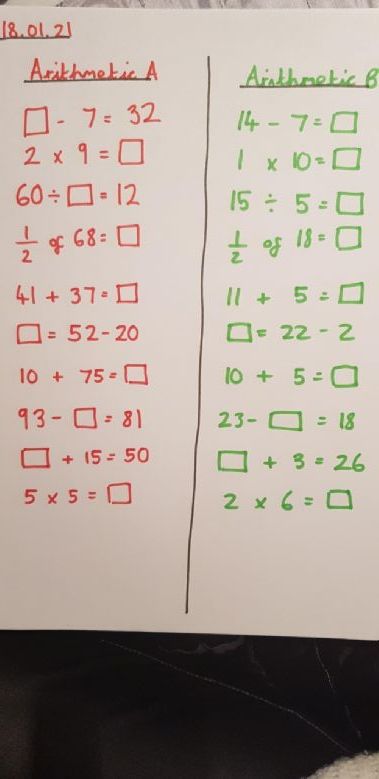 18.01.21
Arithmetic A
□ - 7 = 32
2 x 9 = □
60 ÷ □ = 12
1/2 of 68 = □
41 + 37 = □
□ = 52 - 20
10 + 75 = □
93 - □ = 81
□ + 15 = 50
5 x 5 = □
Arithmetic B
14 - 7 = □
1 x 10 = □
15 ÷ 5 = □
1/2 of 18 = □
11 + 5 = □
□ = 22 - 2
10 + 5 = □
23 - □ = 18
□ + 3 = 26
2 x 6 = □